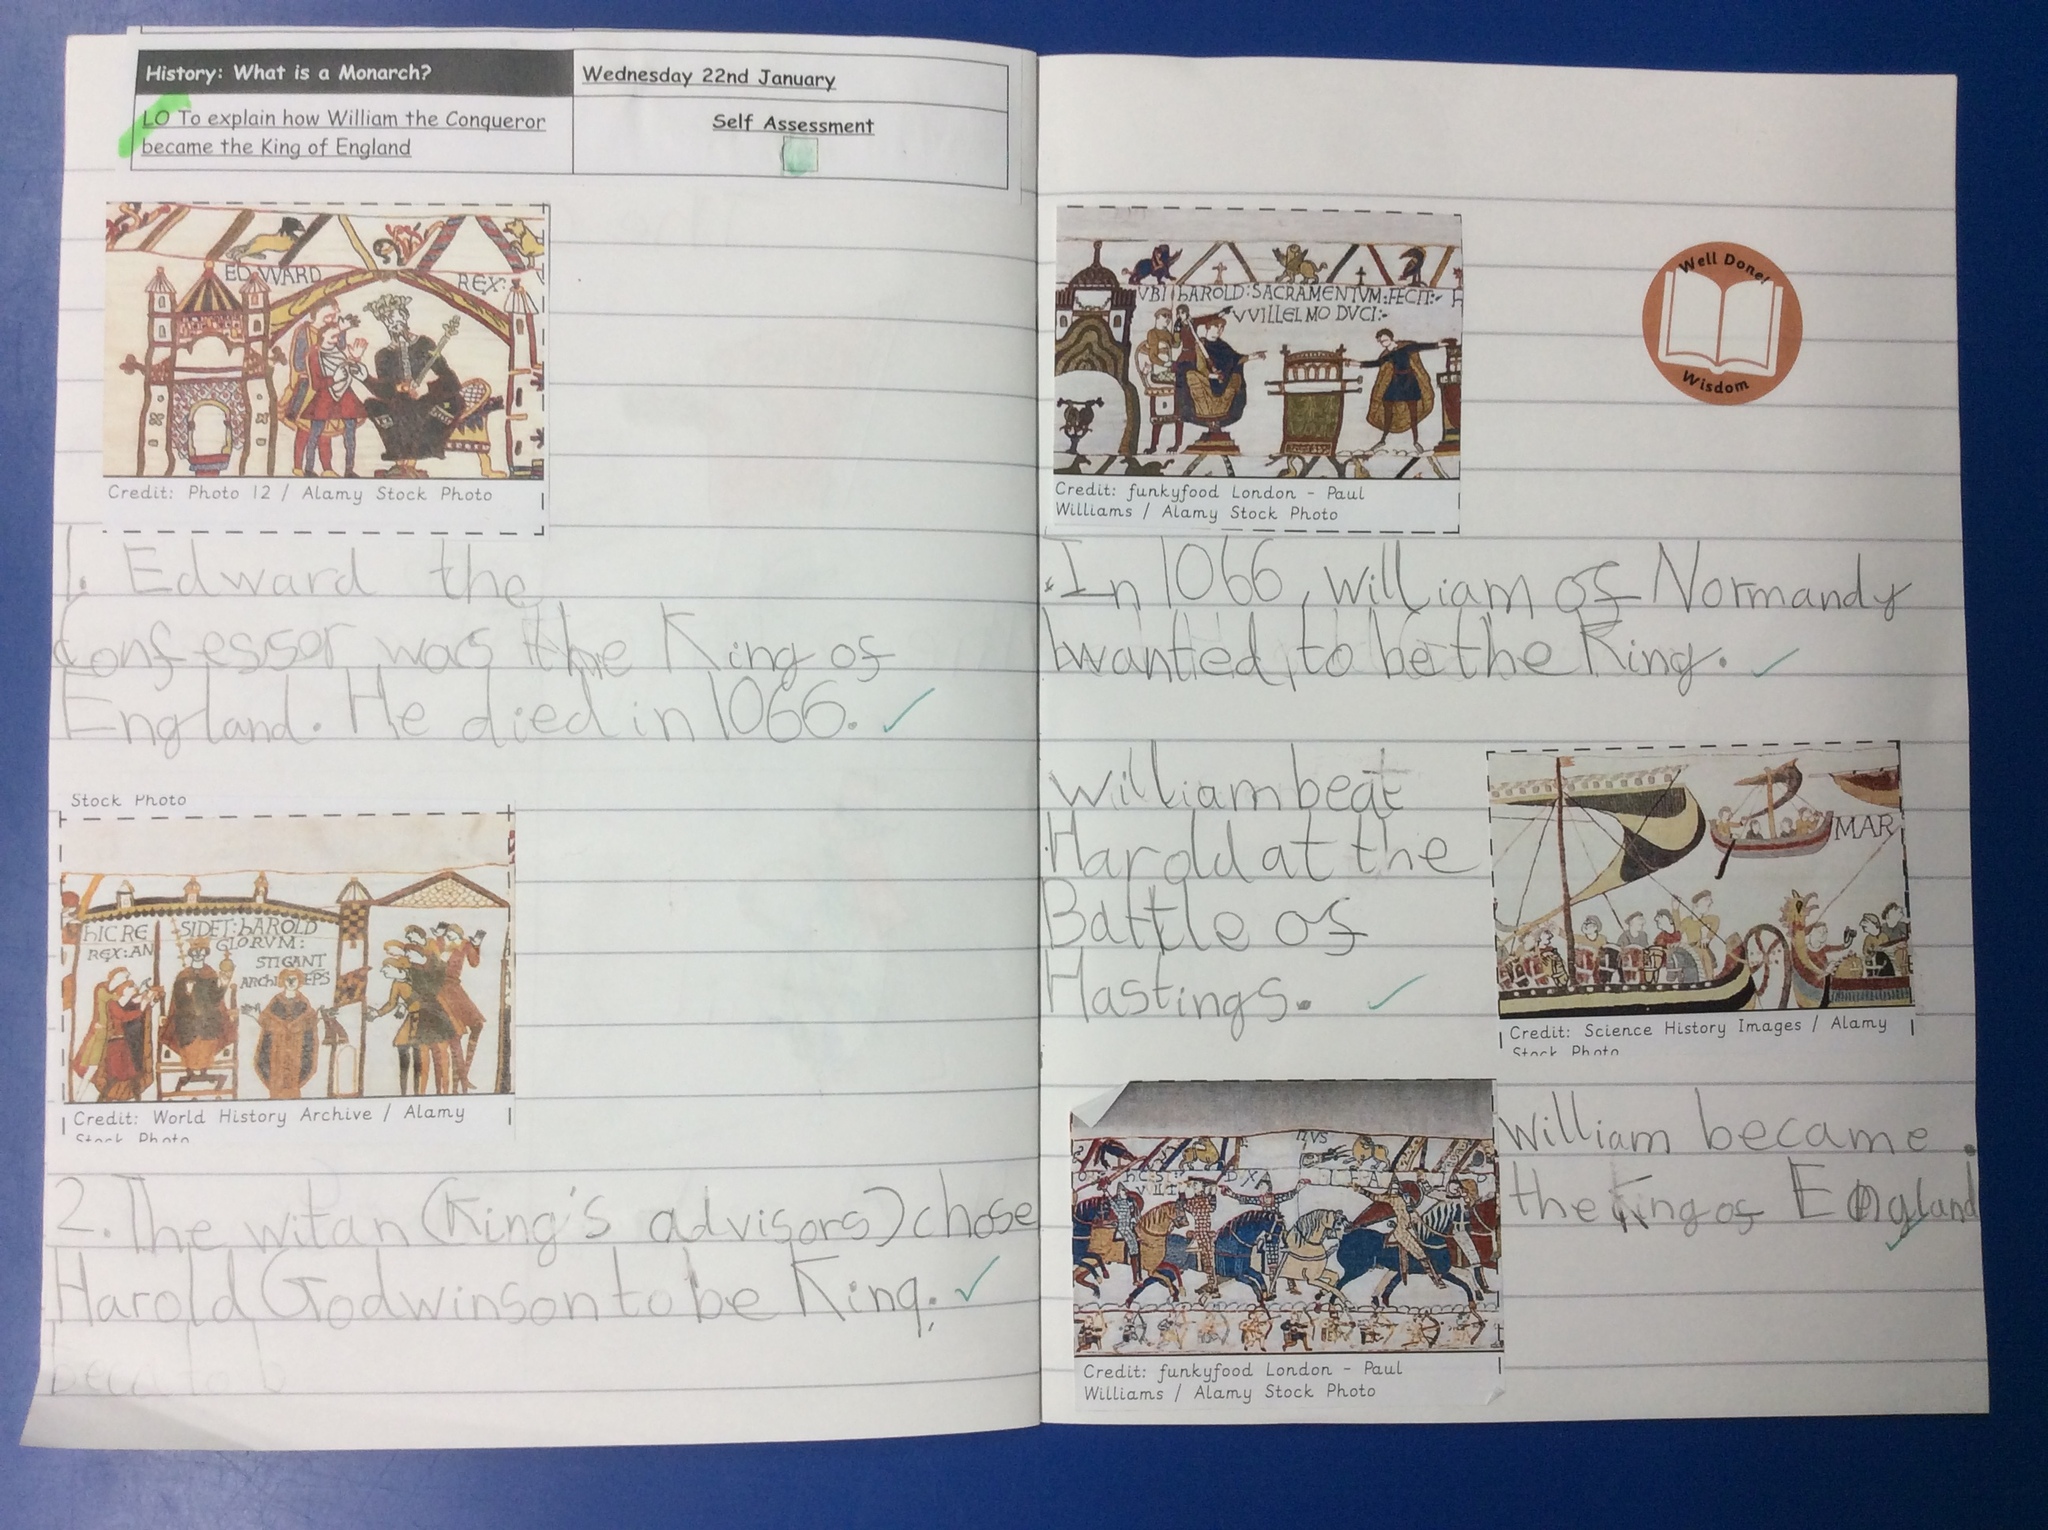 History: What is a Monarch?
Wednesday 22nd January
LO To explain how William the Conqueror
became the King of England
Self Assessment
EDWARD REX:
Credit: Photo 12 / Alamy Stock Photo
1. Edward the
Confessor was the King of
England. He died in 1066.
Stock Photo
hIC RE SIDET: hAROLD
REX: AN GLORVM:
STIGANT
ARChI EPS
Credit: World History Archive / Alamy
Stock Photo
2. The witan (King's advisors) chose
Harold Godwinson to be King.
VBI hAROLD: SACRAMENTVM: FECIT:
VVILLELMO DVCI:
Credit: funkyfood London - Paul
Williams / Alamy Stock Photo
Well Done!
Wisdom
In 1066, william of Normandy
wanted to be the King.
William beat
Harold at the
Battle of
Hastings.
MAR
Credit: Science History Images / Alamy
Stock Photo
William became
the King of England
Credit: funkyfood London - Paul
Williams / Alamy Stock Photo